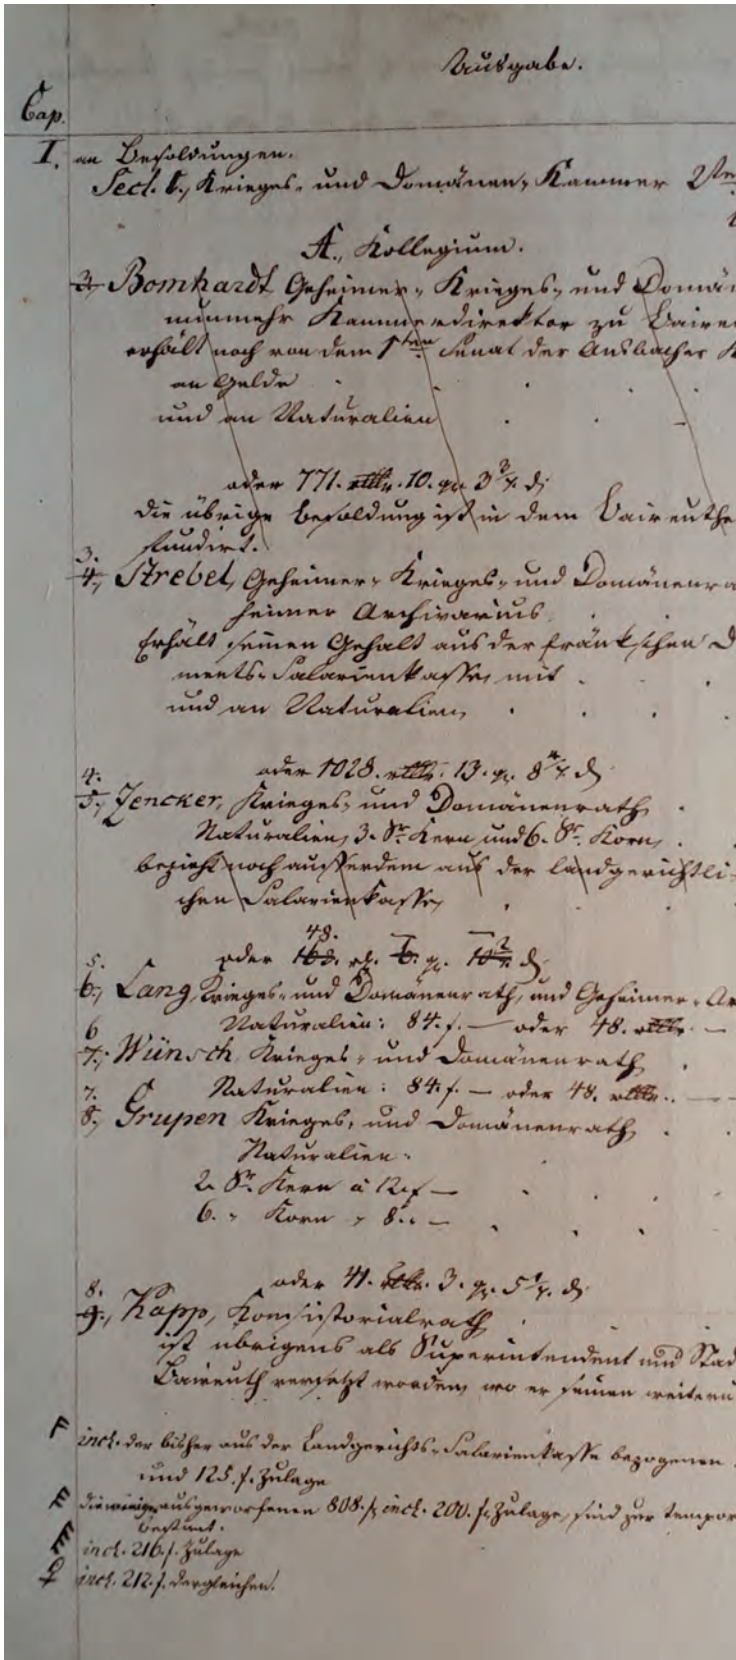 Ausgabe.
Cap.
I. an Besoldungen.
Sect. I., Krieges- und Domänen-Kammer 2ten
A., Kollegium.
3., Bomhardt Geheimer- Krieges- und Domän
nunmehr Kammerdirektor zu Baireu
erhält noch von dem 1ten Senat der Ansbacher K
an Gelde
und an Naturalien
oder 771. rthlr. 10. gr. 3 3/7. d
die übrige Besoldung ist in dem Baireuthe
fundirt.
3.
4., Strebel, Geheimer- Krieges- und Domänenra
heimer Archivarius
Erhält seinen Gehalt aus der fränkschen D
ments-Salarienkasse, mit
und an Naturalien,
oder 1028. rthlr. 13. gr. 8 4/7. d
4.
5., Zencker, Krieges- und Domänenrath
Naturalien, 3. Sr. Kern und 6. Sr. Korn,
bezieht noch ausserdem aus der landgerichtli-
chen Salarienkasse,
48.
oder 168. rh. 6. gr. d
5.
6., Lang, Krieges- und Domänenrath, und Geheimer- Ar
Naturalien: 84. f. — oder 48. rthlr. —
6
7., Wünsch, Krieges- und Domänenrath
Naturalien: 84. f. — oder 48. rthlr. —
7.
8., Grupen Krieges- und Domänenrath,
Naturalien:
2. Sr. Kern a 12. f —
6. " Korn " 8. " —
oder 41. rthlr. 3. gr. 5 1/7. d
8.
9., Kapp, Konsistorialrath
ist übrigens als Superintendent und Stad
Baireuth versetzt worden, wo er seinen weitern
incl. der bisher aus der Landgerichts-Salarienkasse bezogenen
und 125. f. Zulage
die ausgeworfenen 808. f. incl. 200. f. Zulage, sind zur tempor
bestimt.
incl. 216. f. Zulage
incl. 212. f. dergleichen.